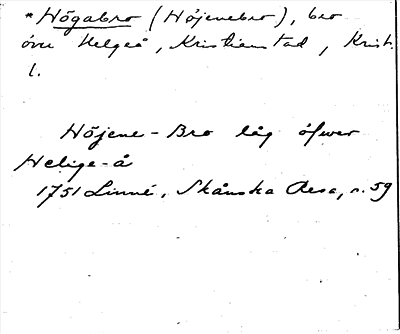 * Högabro (Höjenebro), bro
över Helgeå, Kristianstad, Krist.
l.
Höjene-Bro låg öfwer
Helige-å
1751 Linné, Skånska Resa, s. 59